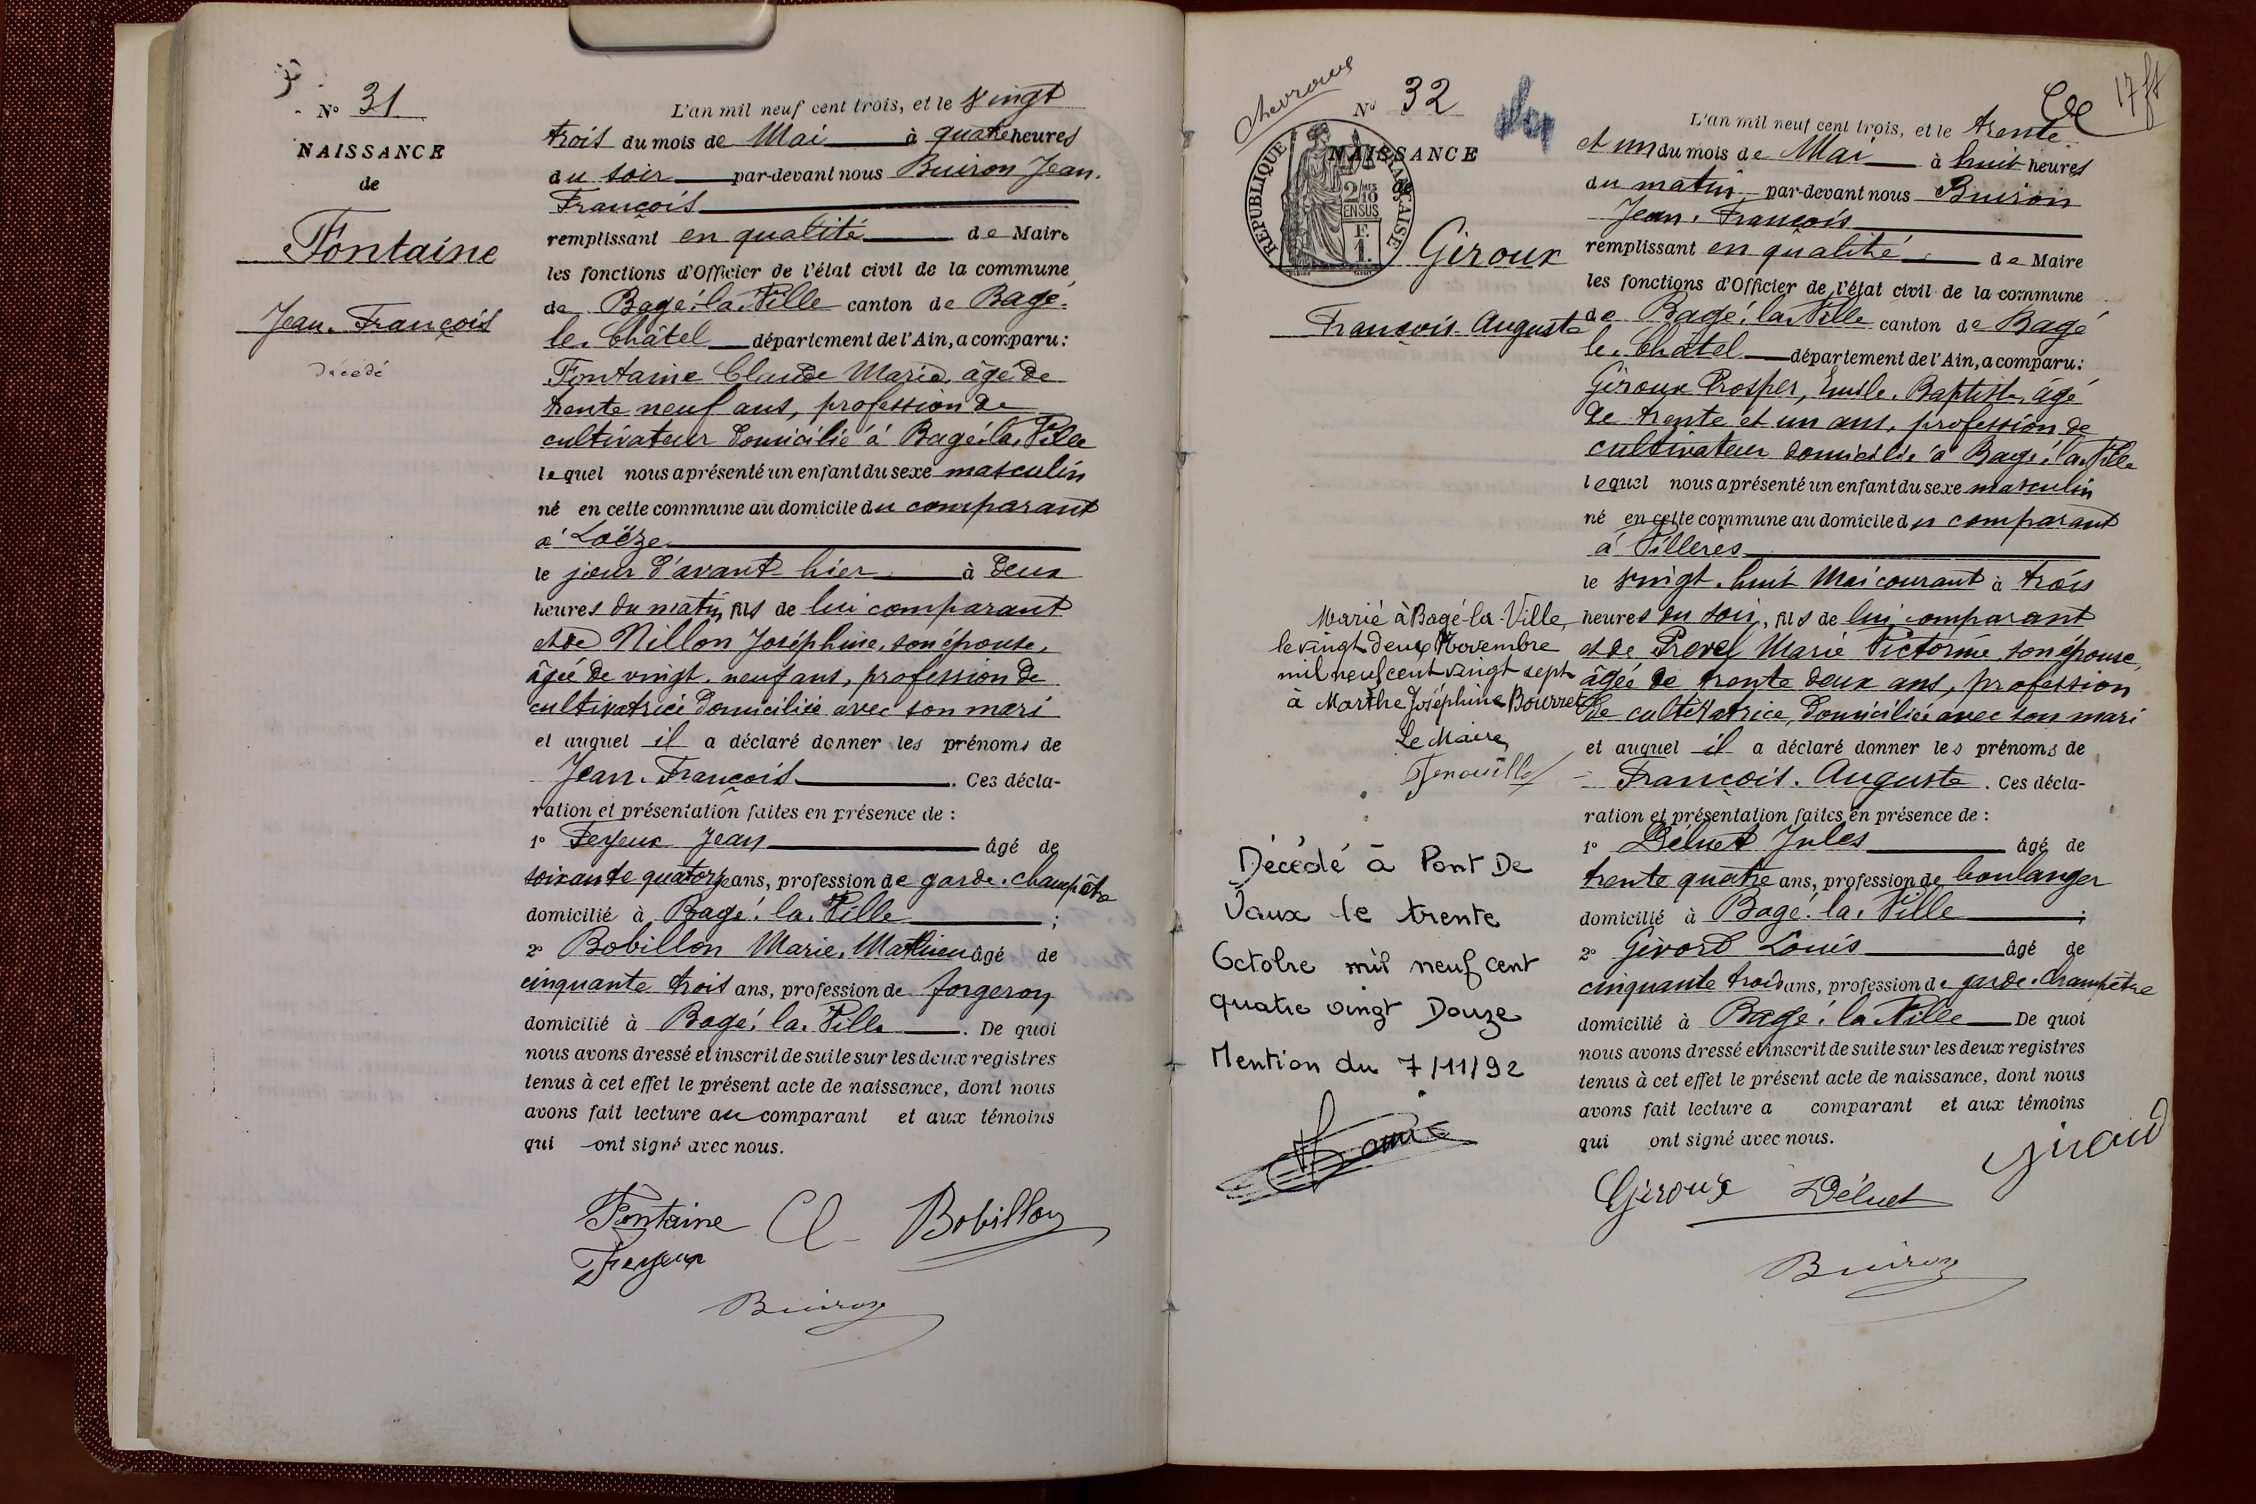 N° 31
NAISSANCE
de
Fontaine
Jean-François
Décédé
L'an mil neuf cent trois, et le vingt
trois du mois de Mai à quatre heures
du soir par-devant nous Buiron Jean-
François
remplissant en qualité de Maire
les fonctions d'Officier de l'état civil de la commune
de Bagé-la-Ville canton de Bagé-
le-Châtel département de l'Ain, a comparu:
Fontaine Claude Marie, âgé de
trente neuf ans, profession de
cultivateur domicilié à Bagé-la-Ville
lequel nous a présenté un enfant du sexe masculin
né en cette commune au domicile du comparant
à Loëze
le jour d'avant-hier à deux
heures du matin, fils de lui comparant
et de Nillon Joséphine, son épouse,
âgée de vingt-neuf ans, profession de
cultivatrice domiciliée avec son mari
et auquel il a déclaré donner les prénoms de
Jean-François. Ces décla-
ration et présentation faites en présence de :
1° Feyeux Jean âgé de
soixante quatorze ans, profession de garde-champêtre
domicilié à Bagé-la-Ville ;
2° Bobillon Marie-Mathieu âgé de
cinquante trois ans, profession de forgeron
domicilié à Bagé-la-Ville. De quoi
nous avons dressé et inscrit de suite sur les deux registres
tenus à cet effet le présent acte de naissance, dont nous
avons fait lecture au comparant et aux témoins
qui ont signé avec nous.
Fontaine Cl Bobillon
Feyeux
Buiron
Chevroux
N° 32
17 ft
RÉPUBLIQUE FRANÇAISE
2/10 EN SUS
F. 1.
NAISSANCE
de
Giroux
François-Auguste
L'an mil neuf cent trois, et le trente
et un du mois de Mai à huit heures
du matin par-devant nous Buiron
Jean-François
remplissant en qualité de Maire
les fonctions d'Officier de l'état civil de la commune
de Bagé-la-Ville canton de Bagé
le-Châtel département de l'Ain, a comparu:
Giroux Prosper, Emile-Baptiste, âgé
de trente et un ans, profession de
cultivateur domicilié à Bagé-la-Ville
lequel nous a présenté un enfant du sexe masculin
né en cette commune au domicile du comparant
à Villeres
le vingt-huit Mai courant à trois
heures du soir, fils de lui comparant
et de Prevel Marie Victorine, son épouse,
âgée de trente deux ans, profession
de cultivatrice, domiciliée avec son mari
et auquel il a déclaré donner les prénoms de
François-Auguste. Ces décla-
ration et présentation faites en présence de :
1° Déluet Jules âgé de
trente quatre ans, profession de boulanger
domicilié à Bagé-la-Ville ;
2° Givord Louis âgé de
cinquante trois ans, profession de garde-champêtre
domicilié à Bagé-la-Ville De quoi
nous avons dressé et inscrit de suite sur les deux registres
tenus à cet effet le présent acte de naissance, dont nous
avons fait lecture a comparant et aux témoins
qui ont signé avec nous.
Giroux Déluet
Buiron
Marié à Bagé-la-Ville,
le vingt deux Novembre
mil neuf cent vingt sept
à Marthe Joséphine Bourret
Le Maire,
Décédé à Pont De
Vaux le trente
Octobre mil neuf cent
quatre vingt Douze
Mention du 7/11/92